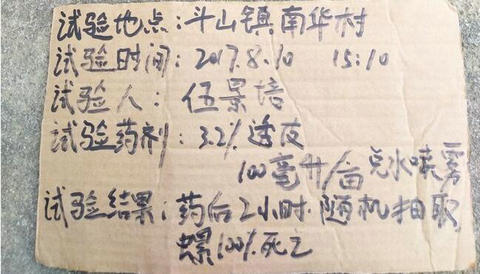 试验地点：斗山镇南华村
试验时间：2017.8.10 15:10
试验人：伍景培
试验药剂：3.2%透皮
100毫升/亩兑水喷雾
试验结果：药后2小时随机抽取
螺100%死亡